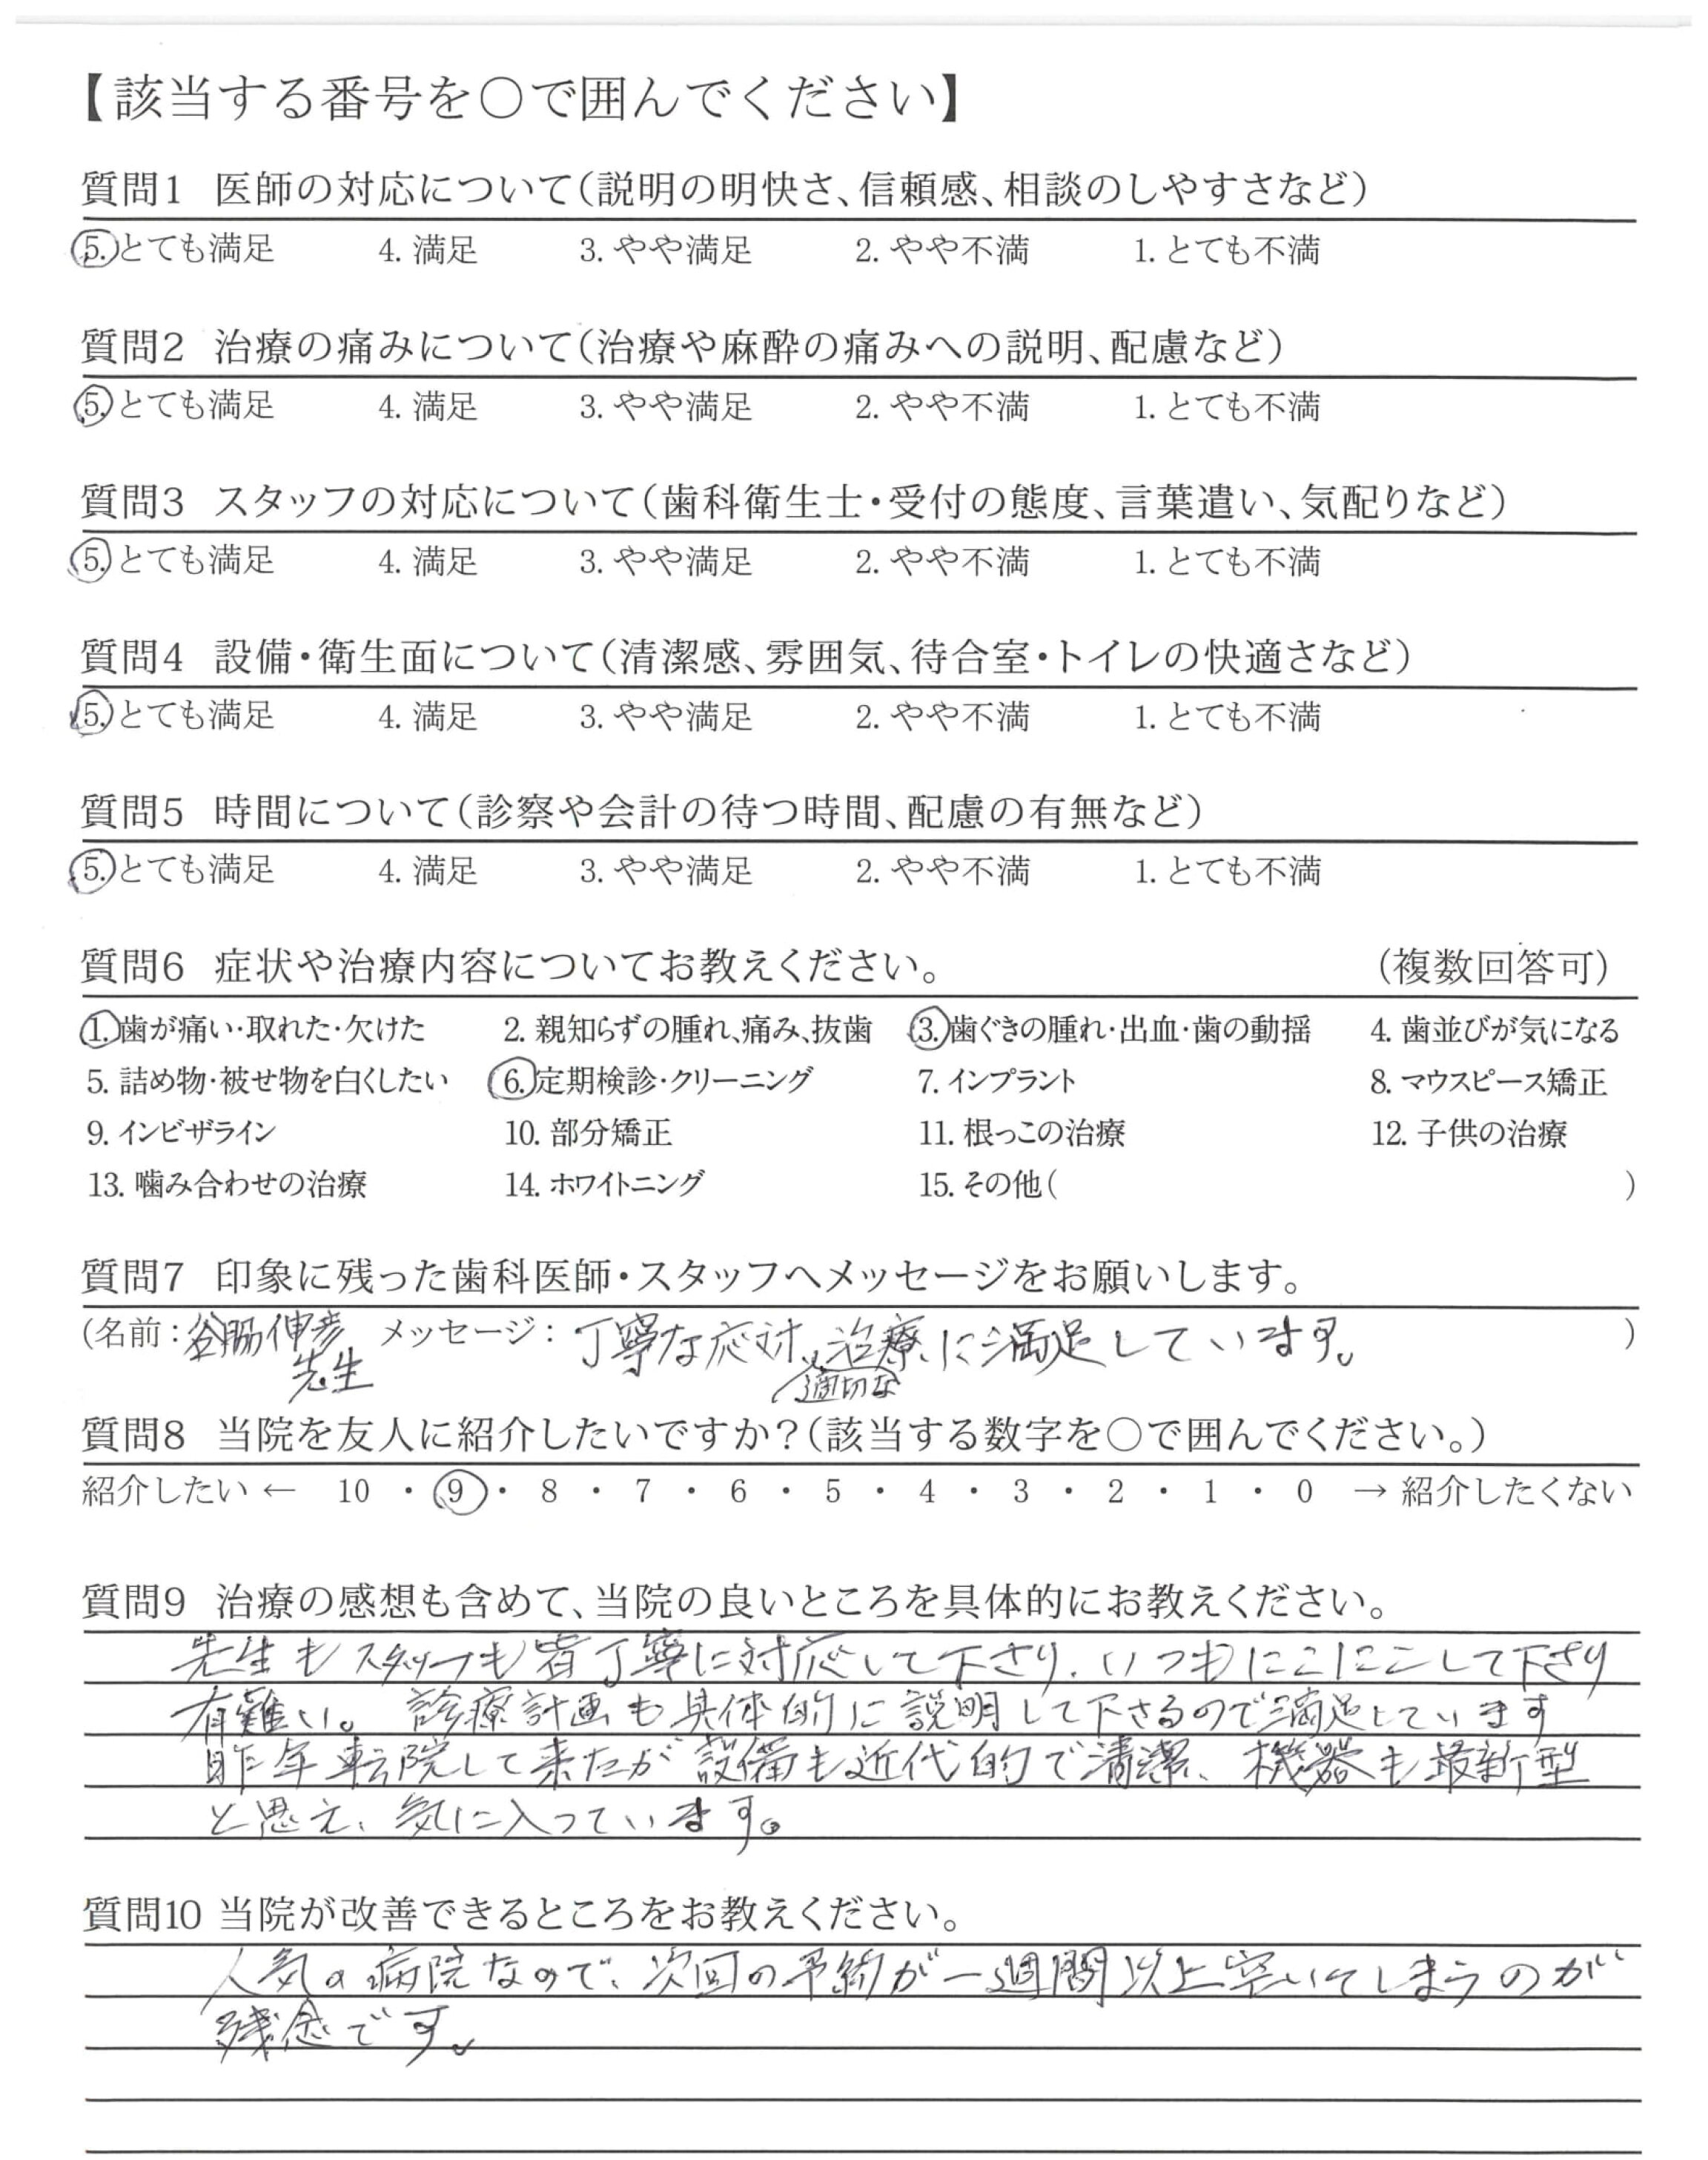 【該当する番号を〇で囲んでください】
質問1 医師の対応について(説明の明快さ、信頼感、相談のしやすさなど)
5. とても満足 4. 満足 3. やや満足 2. やや不満 1. とても不満
質問2 治療の痛みについて(治療や麻酔の痛みへの説明、配慮など)
5. とても満足 4. 満足 3. やや満足 2. やや不満 1. とても不満
質問3 スタッフの対応について(歯科衛生士・受付の態度、言葉遣い、気配りなど)
5. とても満足 4. 満足 3. やや満足 2. やや不満 1. とても不満
質問4 設備・衛生面について(清潔感、雰囲気、待合室・トイレの快適さなど)
5. とても満足 4. 満足 3. やや満足 2. やや不満 1. とても不満
質問5 時間について(診察や会計の待つ時間、配慮の有無など)
5. とても満足 4. 満足 3. やや満足 2. やや不満 1. とても不満
質問6 症状や治療内容についてお教えください。 (複数回答可)
1. 歯が痛い・取れた・欠けた 2. 親知らずの腫れ、痛み、抜歯 3. 歯ぐきの腫れ・出血・歯の動揺 4. 歯並びが気になる
5. 詰め物・被せ物を白くしたい 6. 定期検診・クリーニング 7. インプラント 8. マウスピース矯正
9. インビザライン 10. 部分矯正 11. 根っこの治療 12. 子供の治療
13. 噛み合わせの治療 14. ホワイトニング 15. その他( )
質問7 印象に残った歯科医師・スタッフへメッセージをお願いします。
(名前：谷脇伸彦 メッセージ：丁寧な応対、治療に満足しています。 )
先生 適切な
質問8 当院を友人に紹介したいですか？(該当する数字を〇で囲んでください。)
紹介したい ← 10 ・ 9 ・ 8 ・ 7 ・ 6 ・ 5 ・ 4 ・ 3 ・ 2 ・ 1 ・ 0 → 紹介したくない
質問9 治療の感想も含めて、当院の良いところを具体的にお教えください。
先生もスタッフも皆丁寧に対応して下さり、いつもにこにこして下さり
有難い。診療計画も具体的に説明して下さるので満足しています
昨年転院して来たが設備も近代的で清潔、機器も最新型
と思え、気に入っています。
質問10 当院が改善できるところをお教えください。
人気の病院なので、次回の予約が一週間以上空いてしまうのが
残念です。